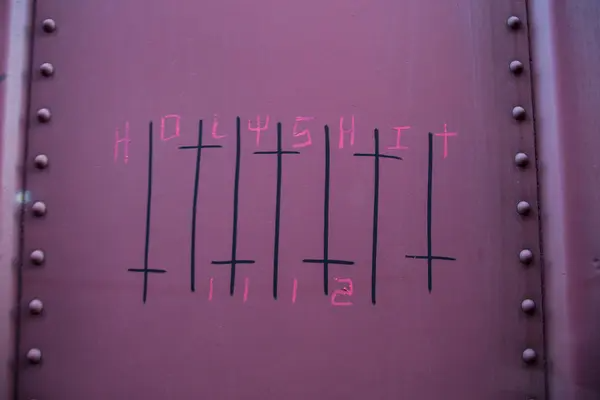 HOLYSHIT
11112